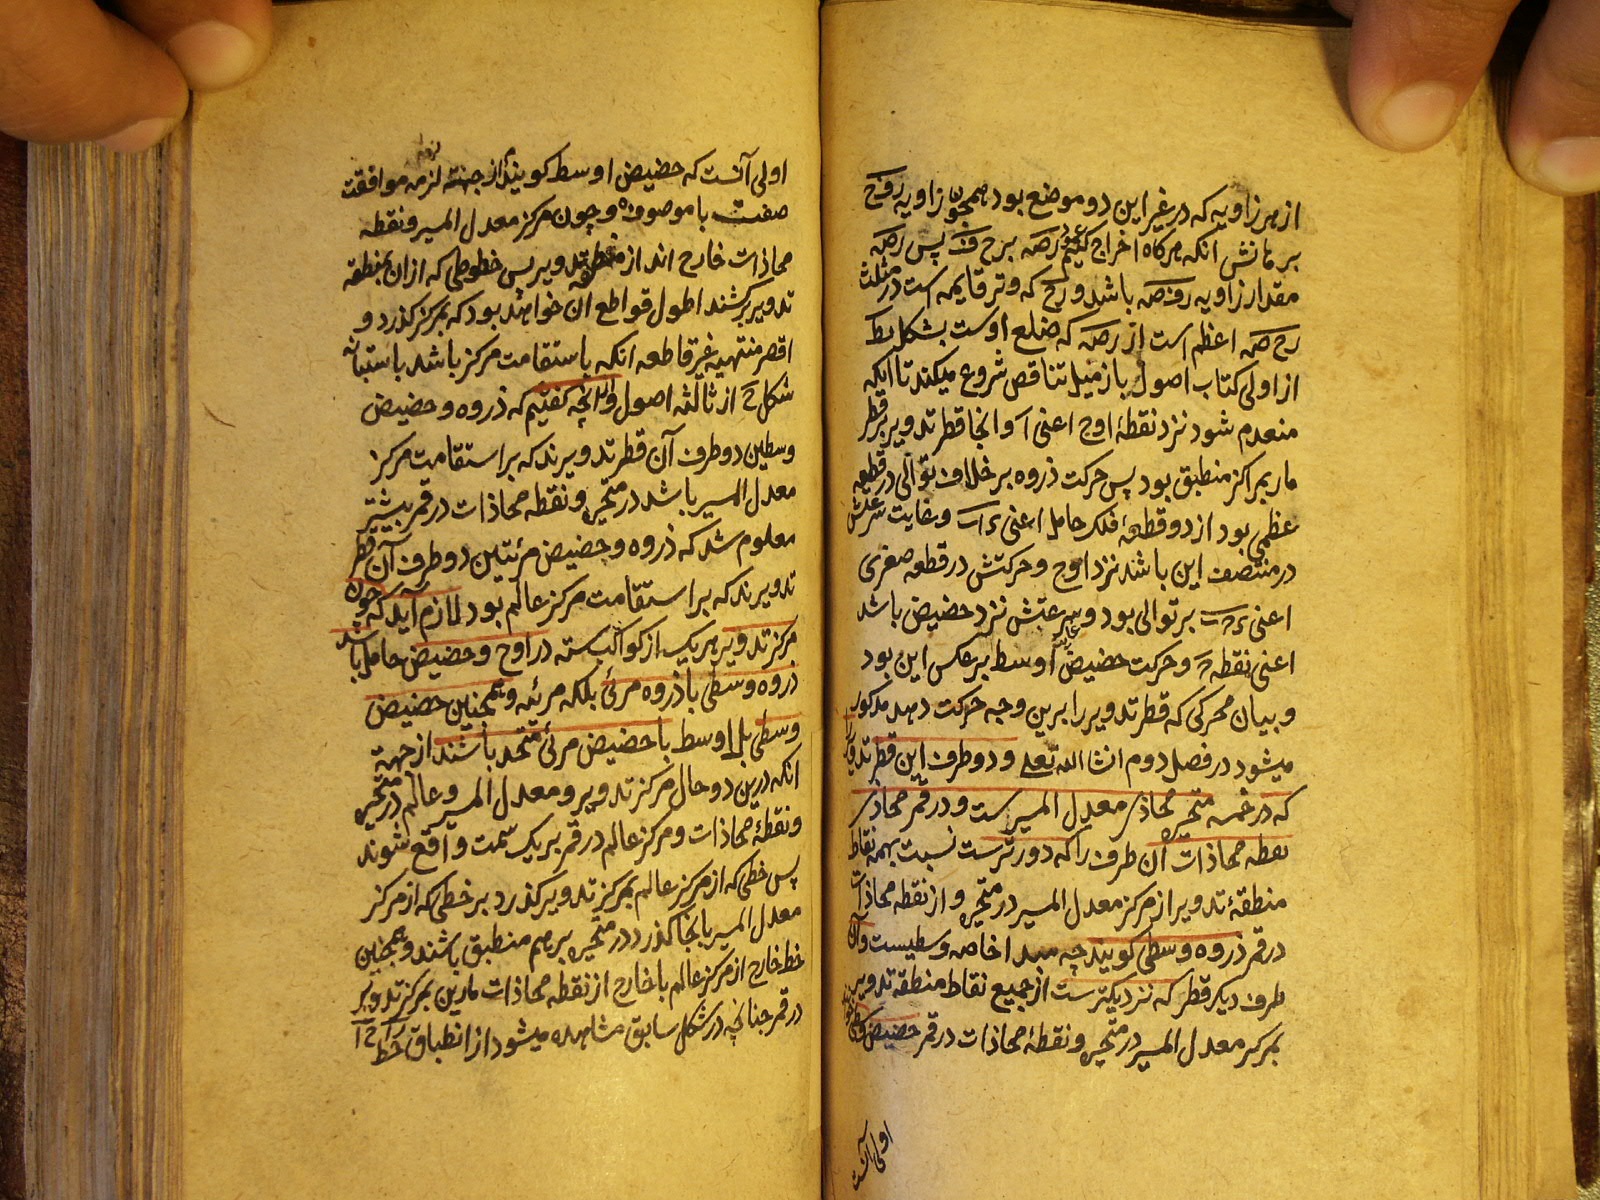 از هر زاویه که در غیر این دو موضع بود همچون زاویه رفح
برهانش انکه هرکاه اخراج کنیم عمود رصه برح ف پس رصه
مقدار زاویه رفصه باشد و رح که وتر قایمه است در مثلث
رح صه اعظم است از رصه که ضلع اوست بشکل یط
از اولی کتاب اصول باز میل تناقص شروع میکند تا انکه
منعدم شود نزد نقطهٔ اوج اعنی آ و انجا قطر تدویر بر قطر
مار بمراکز منطبق بود پس حرکت ذروه بر خلاف توالی در قطعه
عظمی بود از دو قطعهٔ فلک حامل اعنی و غایت سرعتش
در منتصف این باشد نزد اوج و حرکتش در قطعه صغری
اعنی بر توالی بود و سرعتش نزد حضیض باشد
اعنی نقطه و حرکت حضیض اوسط برعکس این بود
و بیان محرکی که قطر تدویر را برین وجه حرکت دهد مذکور
میشود در فصل دوم انشا الله تعلی و دو طرف این قطر تدویر را
که در خمسه متحیره محاذی معدل المسیرست و در قمر محاذی
نقطه محاذات آن طرف را که دورترست نسبت بهمه نقاط
منطقهٔ تدویر از مرکز معدل المسیر در متحیره و از نقطه محاذات
در قمر ذروه وسطی کویند چه مبدا خاصه وسطیست و آن
طرف دیکر قطر که نزدیکترست از جمیع نقاط منطقه تدویر
بمرکز معدل المسیر در متحیره و نقطهٔ محاذات در قمر حضیض وسطی
اولی آنست
اولی آنست که حضیض اوسط کویند از جهته لزمه موافقت
صفت با موصوف و چون مرکز معدل المسیر و نقطه
محاذات خارج اند از منطقه تدویر پس خطوطی که از ان بمنطقه
تدویر برکشند اطول قواطع ان خواهد بود که بمرکز کذرد و
اقصر منتهیه غیر قاطعه انکه باستقامت مرکز باشد باستبانه
شکل ح از ثالثه اصول و انچه کفتیم که ذروه و حضیض
وسطین دو طرف آن قطر تدویرند که بر استقامت مرکز
معدل المسیر باشد در متحیره و نقطه محاذات در قمر بیشتر
معلوم شد که ذروه و حضیض مرئتین دو طرف آن قطر
تدویرند که بر استقامت مرکز عالم بود لازم آید که چون
مرکز تدویر هر یک از کواکب سته در اوج و حضیض حامل باشد
ذروه وسطی با ذروه مرئی بلکه مرئه و همچنین حضیض
وسطی بل اوسط با حضیض مرئی متحد باشند از جهة
انکه درین دو حال مرکز تدویر و معدل المسیر و عالم در متحیره
و نقطهٔ محاذات و مرکز عالم در قمر بر یک سمت واقع شوند
پس خطی که از مرکز عالم بمرکز تدویر کذرد بر خطی که از مرکز
معدل المسیر بانجا کذرد در متحیره بر هم منطبق باشند و همچنین
خط خارج از مرکز عالم با خارج از نقطه محاذات مارین بمرکز تدویر
در قمر چنانچه در شکل سابق مشاهده میشود از انطباق خط